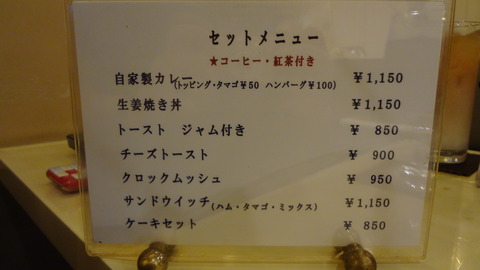 セットメニュー
★コーヒー・紅茶付き
自家製カレー(トッピング・タマゴ¥50 ハンバーグ¥100) ¥1,150
生姜焼き丼 ¥1,150
トースト ジャム付き ¥ 850
チーズトースト ¥ 900
クロックムッシュ ¥ 950
サンドウイッチ(ハム・タマゴ・ミックス) ¥1,150
ケーキセット ¥ 850